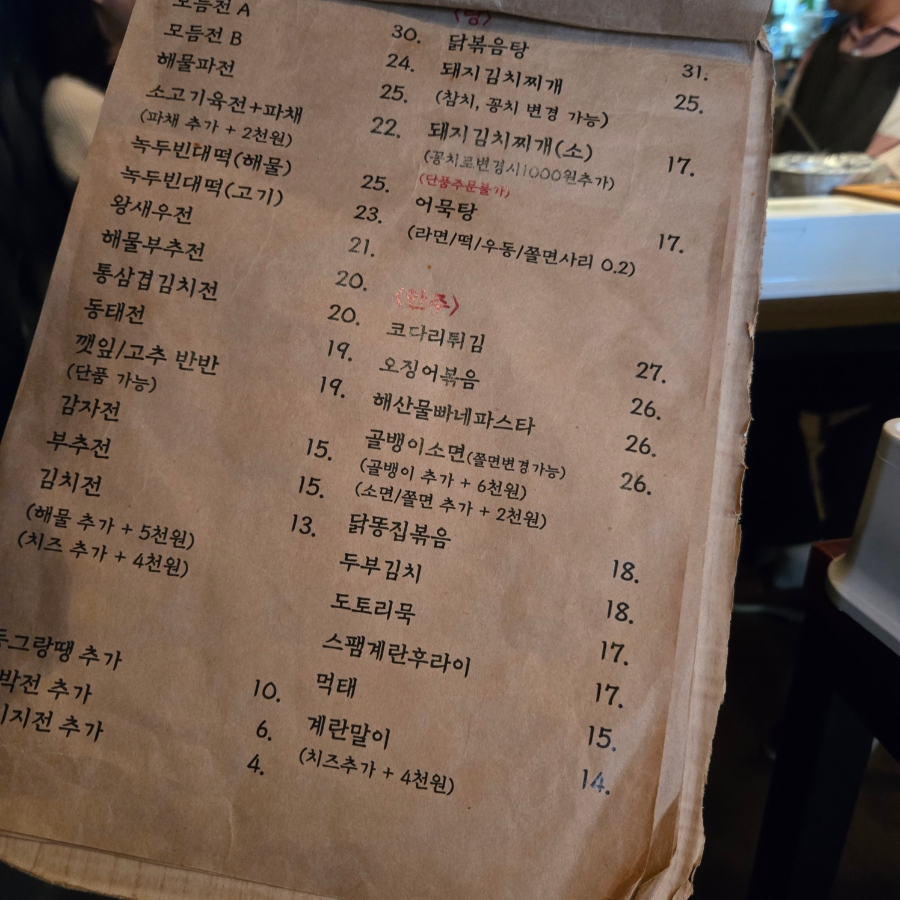 모듬전 A 30.
모듬전 B 24.
해물파전 25.
소고기육전+파채 22.
(파채 추가 + 2천원)
녹두빈대떡(해물) 25.
녹두빈대떡(고기) 23.
왕새우전 21.
해물부추전 20.
통삼겹김치전 20.
동태전 19.
깻잎/고추 반반 19.
(단품 가능)
감자전 15.
부추전 15.
김치전 13.
(해물 추가 + 5천원)
(치즈 추가 + 4천원)
동그랑땡 추가 10.
박전 추가 6.
지전 추가 4.
〈탕〉
닭볶음탕 31.
돼지김치찌개 25.
(참치, 꽁치 변경 가능)
돼지김치찌개(소) 17.
(꽁치로변경시1000원추가)
(단품주문불가)
어묵탕 17.
(라면/떡/우동/쫄면사리 0.2)
〈안주〉
코다리튀김 27.
오징어볶음 26.
해산물빠네파스타 26.
골뱅이소면(쫄면변경가능) 26.
(골뱅이 추가 + 6천원)
(소면/쫄면 추가 + 2천원)
닭똥집볶음 18.
두부김치 18.
도토리묵 17.
스팸계란후라이 17.
먹태 15.
계란말이 14.
(치즈추가 + 4천원)